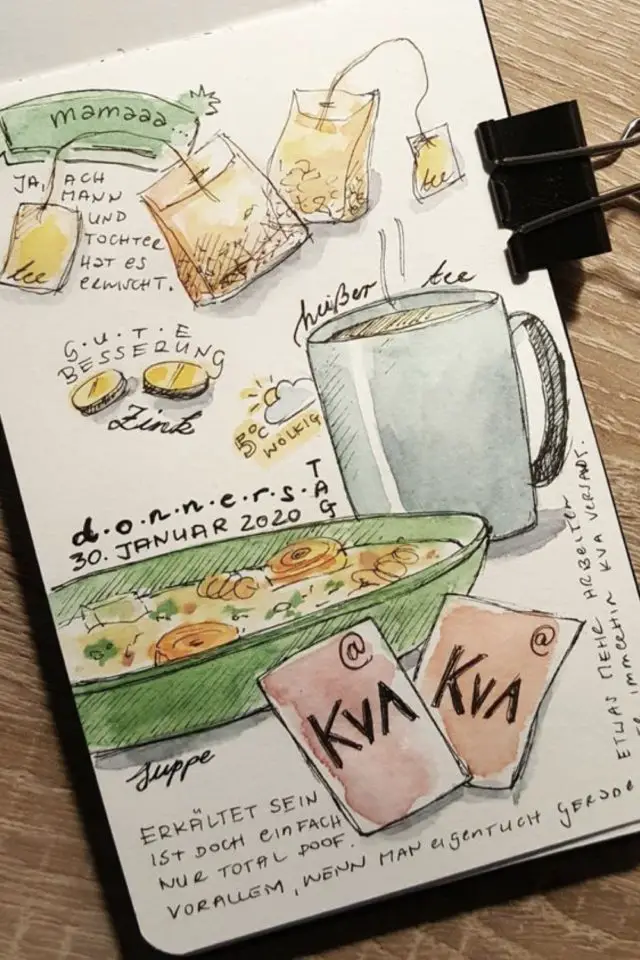 mamaaa...
JA, ACH
MANN
UND
TOCHTER
HAT ES
ERWISCHT.
tee
tee
heißer tee
G.U.T.E
BESSERUNG
Zink
5°C
WOLKIG
d.o.n.n.e.r.s.TAG
30. JANUAR 2020
@
KVA
@
KVA
Suppe
ERKÄLTET SEIN
IST DOCH EINFACH
NUR TOTAL DOOF.
VORALLEM, WENN MAN EIGENTLICH GERADE
ETWAS MEHR ARBEITEN
IMMERHIN KVA VERSANDT.